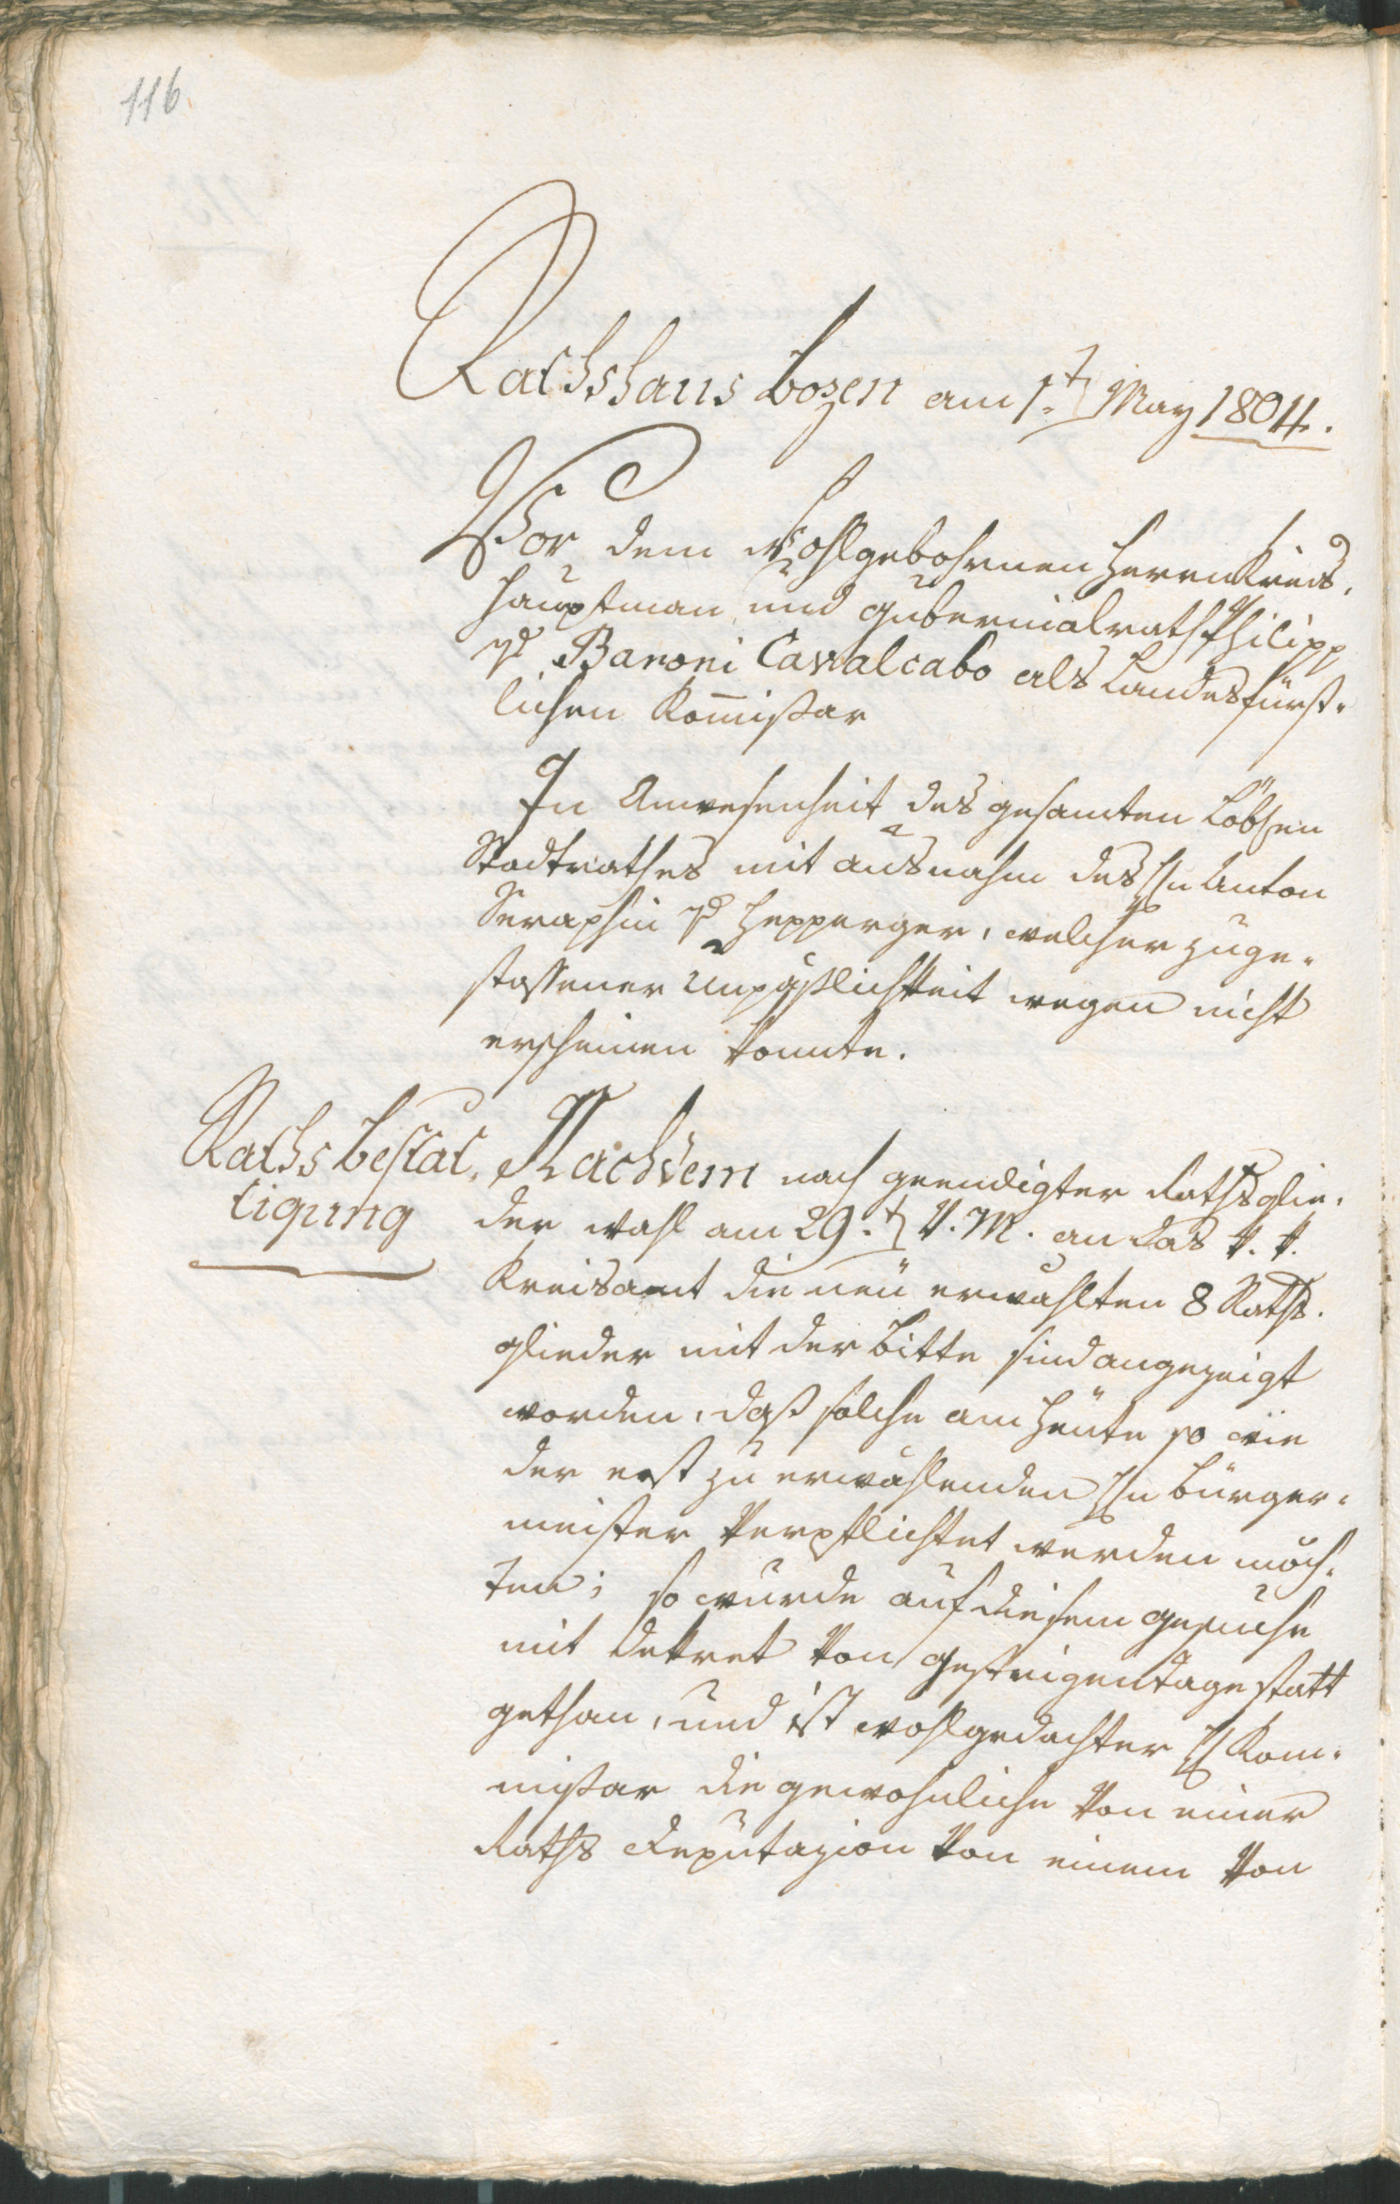 116
Rathshaus Bozen am 1ten May 1804.
Vor dem Wohlgebohrnen Herrn Kreis,
hauptman und Gubernialrath Philipp
v. Baroni Cavalcabo als Landesfürst-
lichen Kom̄ißar
In Anwesenheit des gesamten Löbchen
Stadtrathes mit ausnahm des Hn Anton
Seraphin v. Hepperger, welcher zuge-
stossener Unpäßlichkeit wegen nicht
erscheinen konnte.
Raths bestät,
tigung
Nachdem nach geendigter Rathsglie,
der wahl am 29ten v. M. an das k. k.
Kreisamt die neü erwählten 8 Raths.
glieder mit der Bitte sind angezeigt
worden, daß solche am heute so wie
der erst zu erwählenden Hn Bürger-
meister verpflichtet werden möch-
ten; so wurde auf diesem Gesuche
mit Dekret von gestrigen Tage statt
gethan, und ist wohlgedachter H Kom-
mißar die gewohnliche von einer
Raths Deputazion von einem von